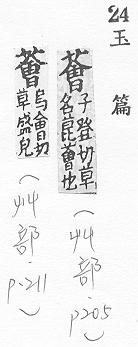 24
玉篇
薈子登切草名昆薈也
(艸部, p.205)
薈烏會切草盛皃
(艸部, p.211)